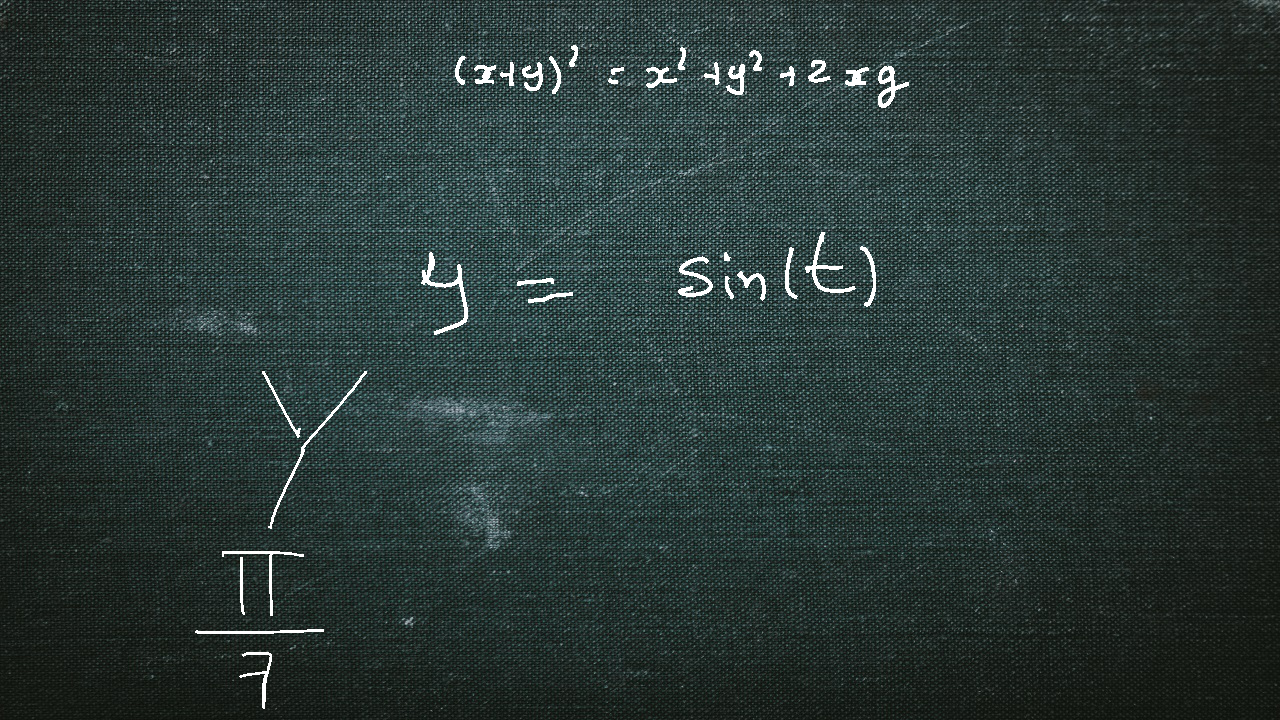 (x+y)² = x² + y² + 2xy
y = sin(t)
Y
π
7